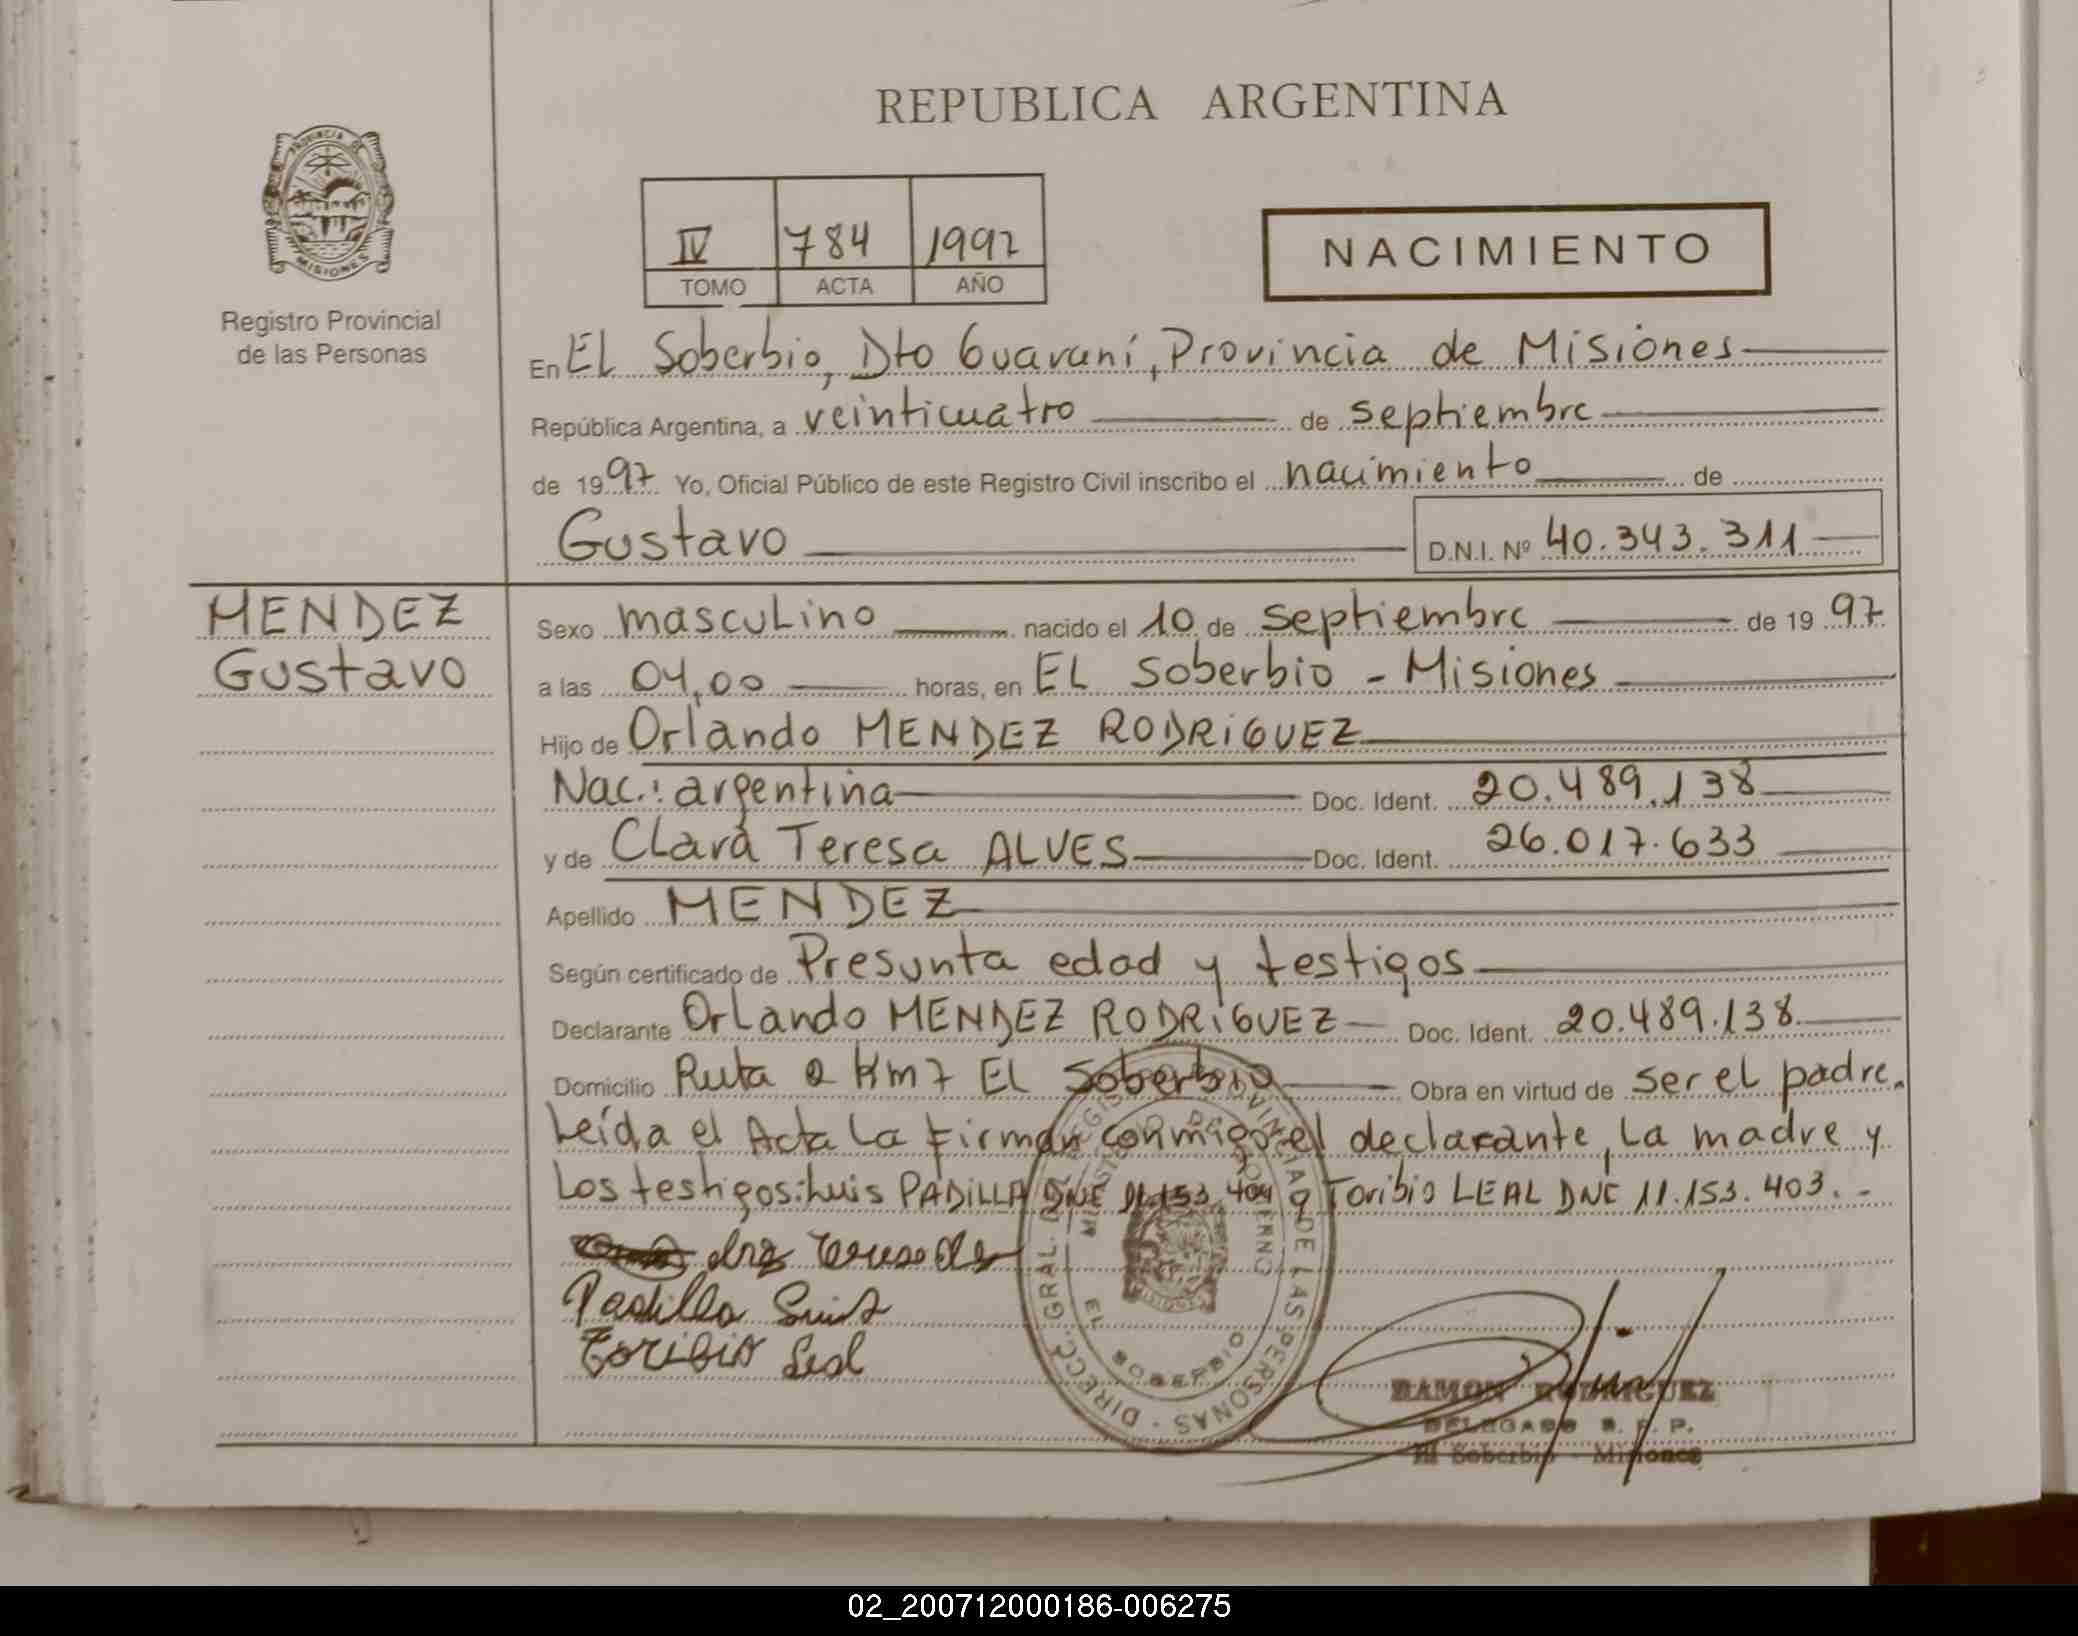 REPUBLICA ARGENTINA
PROVINCIA DE MISIONES
Registro Provincial
de las Personas
IV 784 1997
TOMO ACTA AÑO
NACIMIENTO
En EL Soberbio, Dto Guaraní, Provincia de Misiones
República Argentina, a veinticuatro de septiembre
de 1997 Yo, Oficial Público de este Registro Civil inscribo el nacimiento de
Gustavo D.N.I. Nº 40.343.311
MENDEZ
Gustavo
Sexo masculino nacido el 10 de septiembre de 1997
a las 04,00 horas, en EL Soberbio - Misiones
Hijo de Orlando MENDEZ RODRIGUEZ
Nac.: argentina Doc. Ident. 20.489.138
y de Clara Teresa ALVES Doc. Ident. 26.017.633
Apellido MENDEZ
Según certificado de Presunta edad y testigos
Declarante Orlando MENDEZ RODRIGUEZ Doc. Ident. 20.489.138
Domicilio Ruta 2 Km 7 EL Soberbio Obra en virtud de ser el padre.
Leída el Acta la firman conmigo el declarante, la madre y
los testigos: Luis PADILLA DNE 11.153.404 y Toribio LEAL DNE 11.153.403.-
Padilla Luis
Toribio Leal
DIRECC. GRAL. DE REGISTRO PROVINCIAL DE LAS PERSONAS
MINISTERIO DE GOBIERNO
EL SOBERBIO
RAMON RODRIGUEZ
DELEGADO R. P. P.
El Soberbio - Misiones
02_200712000186-006275